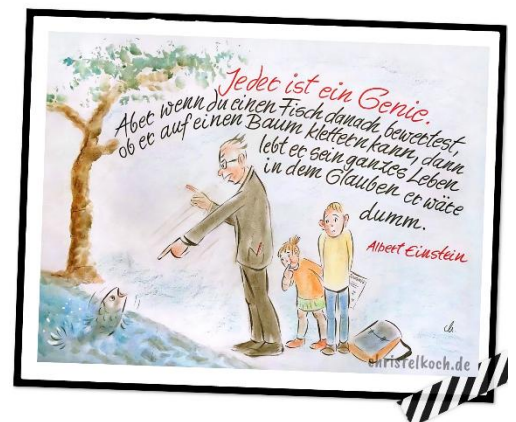 Jeder ist ein Genie.
Aber wenn du einen Fisch danach bewertest,
ob er auf einen Baum klettern kann, dann
lebt er sein ganzes Leben
in dem Glauben er wäre
dumm.
Albert Einstein
christelkoch.de